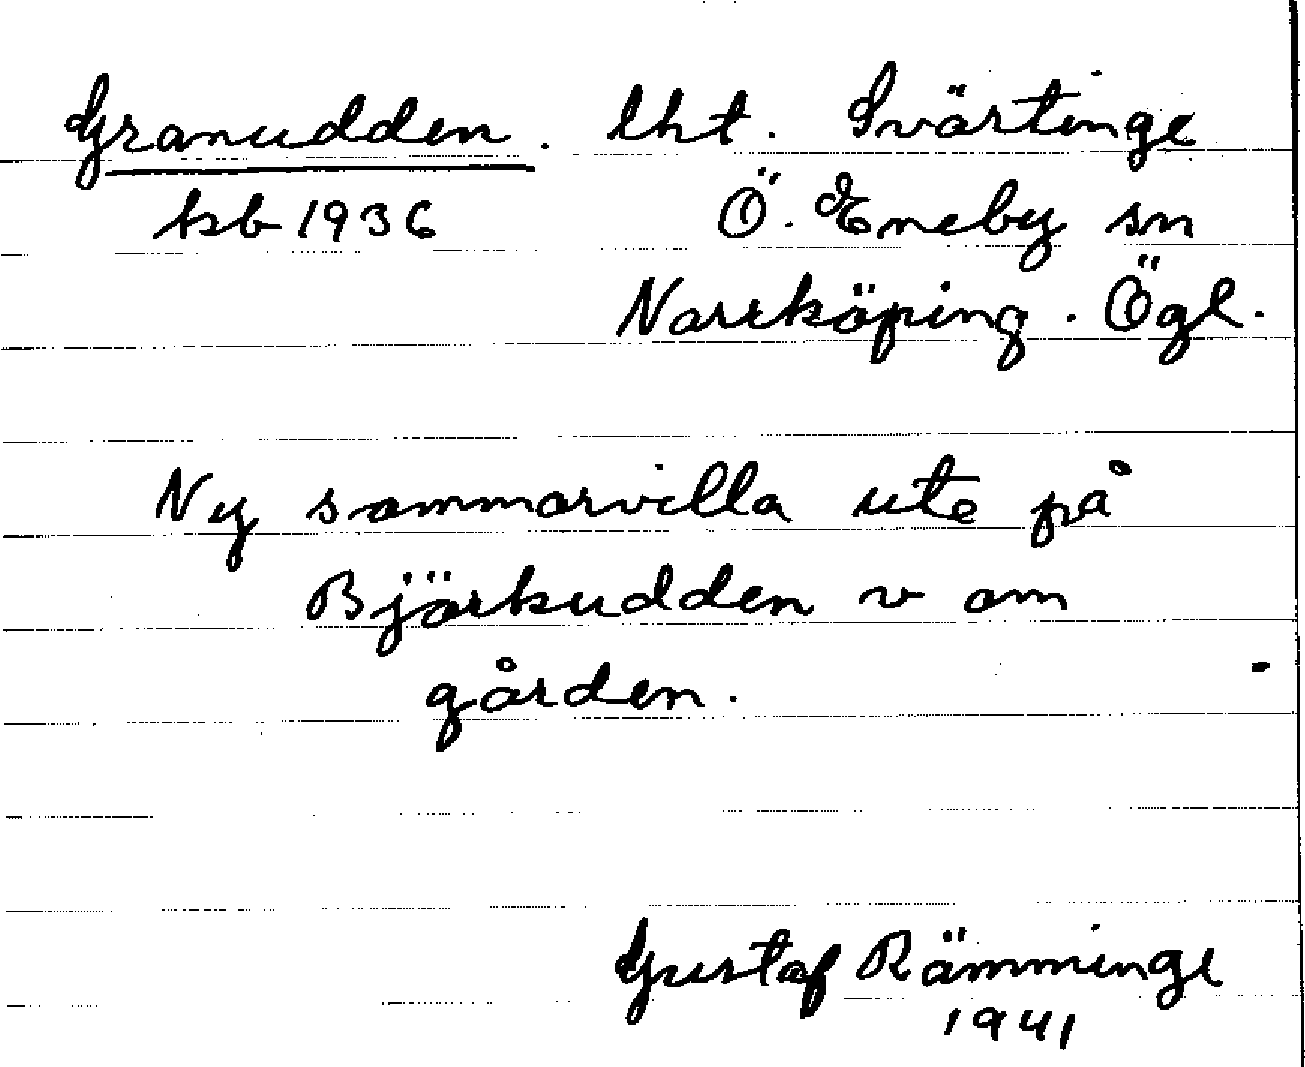 Granudden. lht. Svärtinge
kb 1936 Ö. Eneby sn
Norrköping. Ögl.
Ny sommarvilla ute på
Björkudden v om
gården.
Gustaf Rämminge
1941